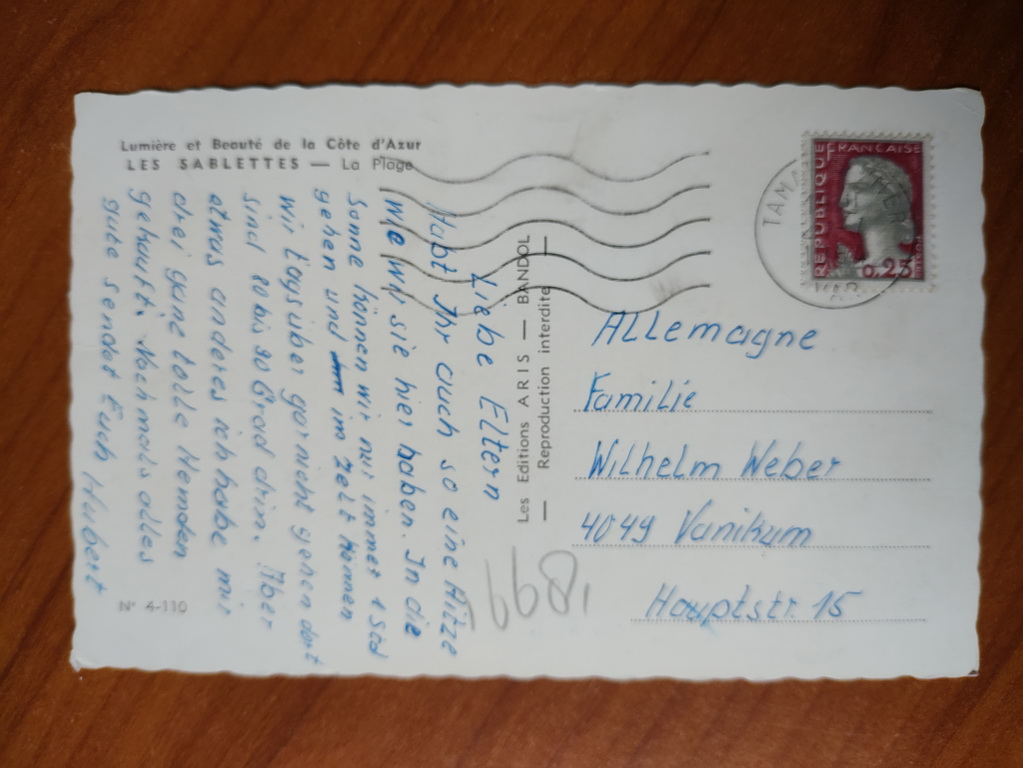 Lumière et Beauté de la Côte d'Azur
LES SABLETTES — La Plage
Liebe Eltern
Habt Ihr auch so eine Hitze
wie wir sie hier haben. In die
Sonne können wir nur immer 1 Std
gehen und im Zelt können
wir tagsüber garnicht gehen dort
sind 80 bis 90 Grad drin. Aber
etwas anderes ich habe mir
drei ganz tolle Hemden
gekauft. Nochmals alles
gute sendet Euch Hubert
N° 4-110
Les Editions ARIS — BANDOL
— Reproduction interdite —
REPUBLIQUE FRANCAISE
0,25
TAMA
VAR
Allemagne
Familie
Wilhelm Weber
4049 Vanikum
Hauptstr. 15